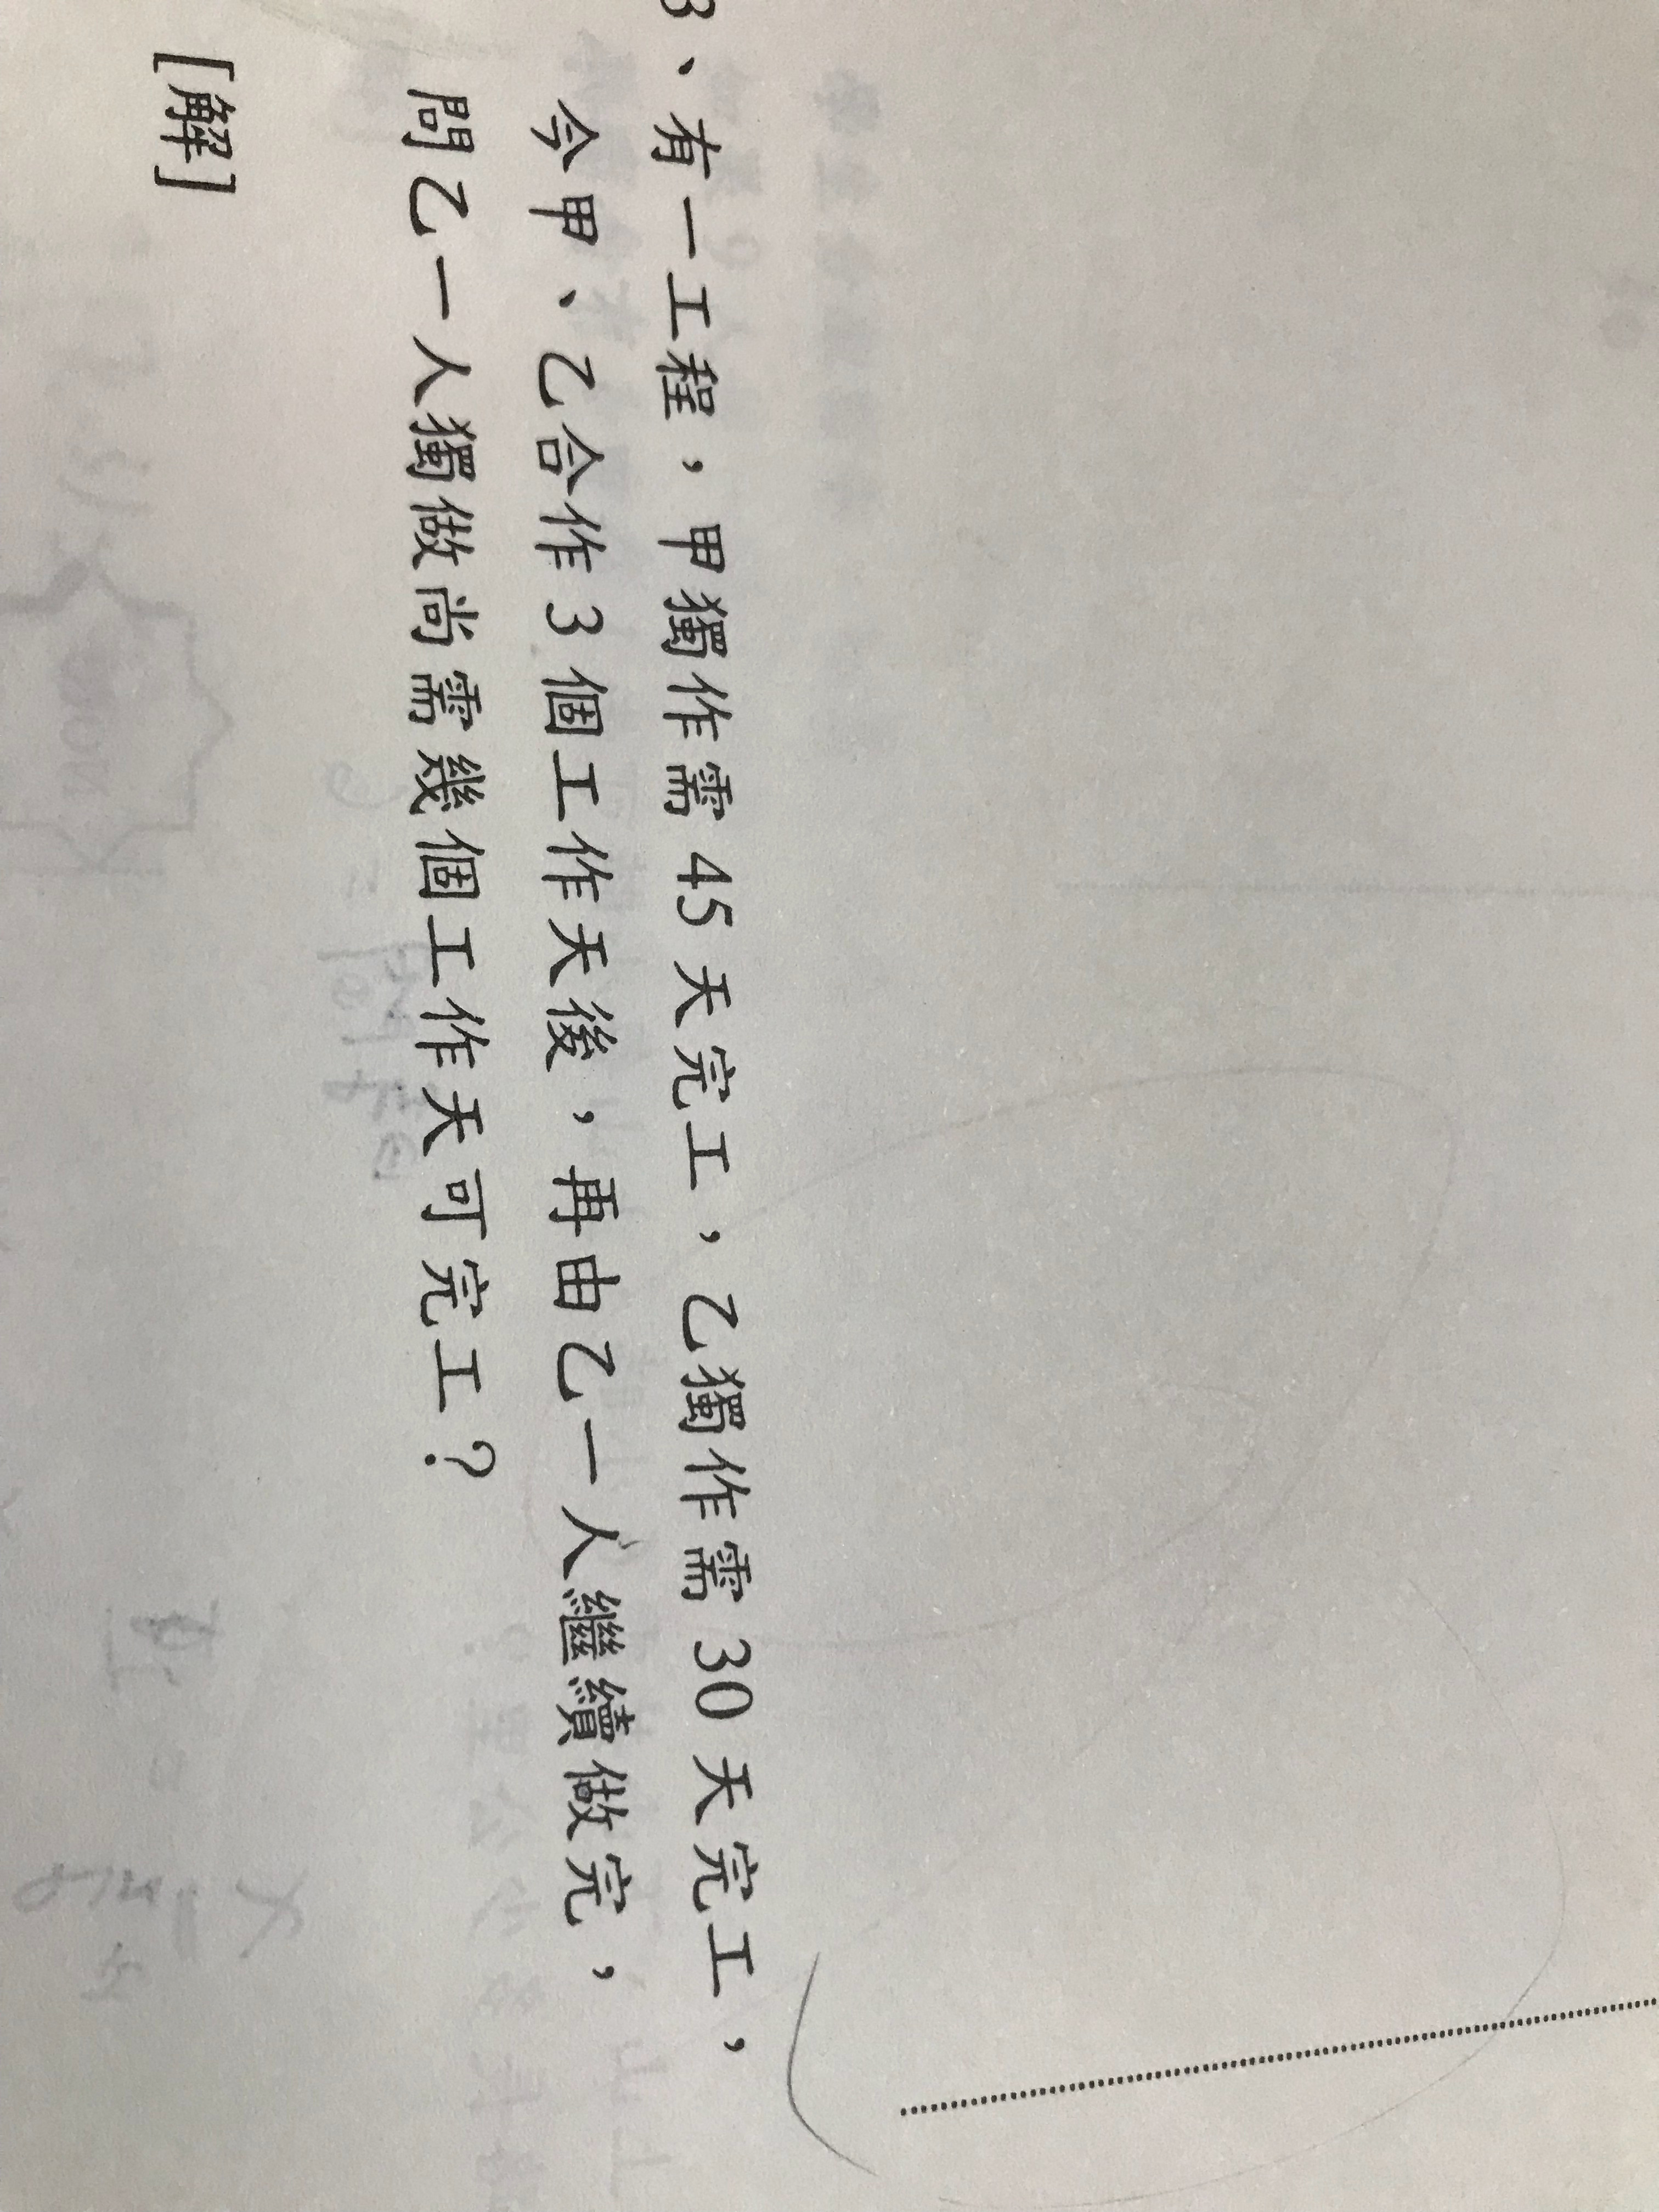 3、有一工程，甲獨作需 45 天完工，乙獨作需 30 天完工，
今甲、乙合作 3 個工作天後，再由乙一人繼續做完，
問乙一人獨做尚需幾個工作天可完工？
[解]